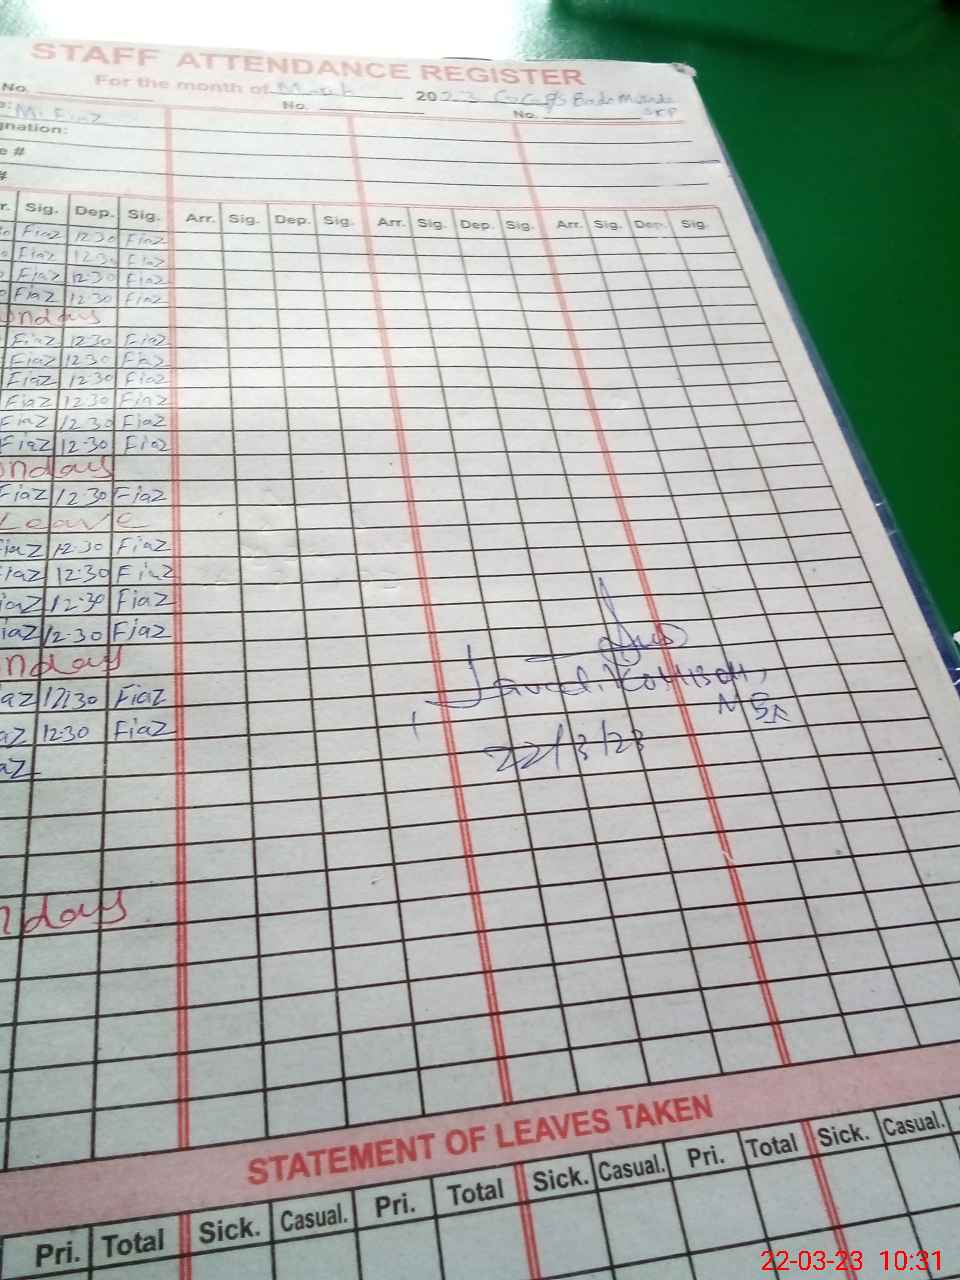 STAFF ATTENDANCE REGISTER
For the month of March 2023
No. No. No.
M. Fiaz
gnation:
e #
#
r. Sig. Dep. Sig. Arr. Sig. Dep. Sig. Arr. Sig. Dep. Sig. Arr. Sig. Dep. Sig.
Fiaz 12:30 Fiaz
Fiaz 12:30 Fiaz
Fiaz 12:30 Fiaz
Fiaz 12:30 Fiaz
onday
Fiaz 12:30 Fiaz
Fiaz 12:30 Fiaz
Fiaz 12:30 Fiaz
Fiaz 12:30 Fiaz
Fiaz 12:30 Fiaz
Fiaz 12:30 Fiaz
onday
Fiaz 12:30 Fiaz
Leave
iaz 12:30 Fiaz
iaz 12:30 Fiaz
iaz 12:30 Fiaz
iaz 12:30 Fiaz
nday
az 12:30 Fiaz
az 12:30 Fiaz
az
22/3/23
nday
STATEMENT OF LEAVES TAKEN
Pri. Total Sick. Casual. Pri. Total Sick. Casual. Pri. Total Sick. Casual.
22-03-23 10:31